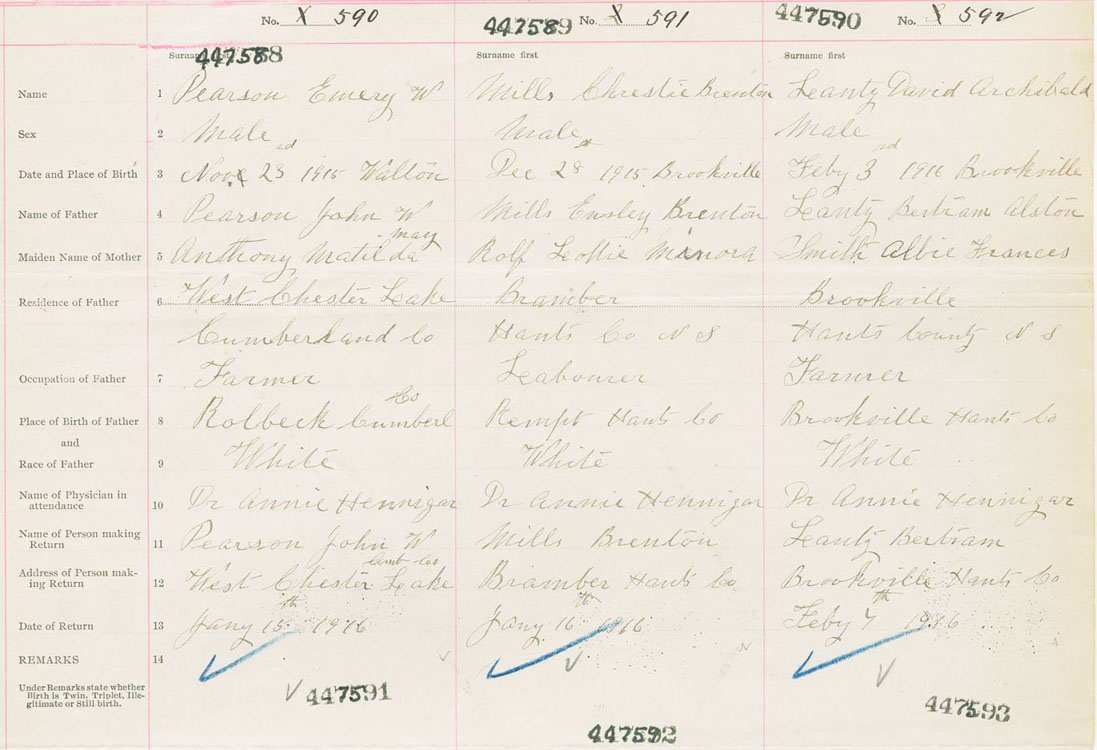 No. X 590 447589 No. 2 591 447590 No. 3 592
447588
Surname first Surname first Surname first
Name 1 Pearson Emery W Mills Chrestie Brenton Leanty David Archibald
Sex 2 Male Male Male
Date and Place of Birth 3 Nov 23rd 1915 Walton Dec 28th 1915 Brookville Feby 3rd 1916 Brookville
Name of Father 4 Pearson John W Mills Ensley Brenton Leanty Bertram Alston
Maiden Name of Mother 5 Anthony Matilda May Rolf Lottie Minora Smith Albie Frances
Residence of Father 6 West Chester Lake Bramber Brookville
Cumberland Co Hants Co N S Hants County N S
Occupation of Father 7 Farmer Leabourer Farmer
Place of Birth of Father 8 Rolbeck Cumberl Co Kempt Hants Co Brookville Hants Co
and
Race of Father 9 White White White
Name of Physician in attendance 10 Dr Annie Hennigar Dr Annie Hennigar Dr Annie Hennigar
Name of Person making Return 11 Pearson John W Mills Brenton Leanty Bertram
Address of Person making Return 12 West Chester Lake Cumb Co Bramber Hants Co Brookville Hants Co
Date of Return 13 Jany 15th 1916 Jany 16th 1916 Feby 7th 1916
REMARKS 14
Under Remarks state whether
Birth is Twin, Triplet, Ille-
gitimate or Still-birth.
447591 447592 447593